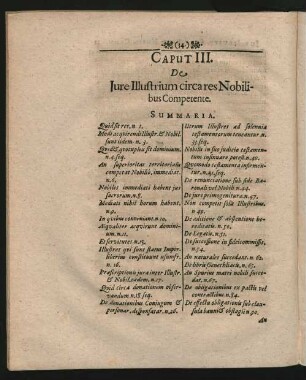 (14)
CAPUT III.
De
Jure Illustrium circa res Nobili-
bus Competente.
SUMMARIA.
Quid sit res, n. 1.
Modi acquirendi Illustr. & Nobil.
sunt iidem. n. 3.
Quid & quotuplex sit dominium.
n. 4. seq.
An superioritas territorialis
competat Nobilib. immediat.
n. 6.
Nobiles immediati habent jus
sacrorum. n. 8.
Mediati nihil horum habent,
n. 9.
In quibus conveniant n. 10.
Aequaliter acquirunt domini-
um. n. 11.
Et servitutes. n. 15.
Illustres qui sunt status Impe-
rii
n. 16.
Praescriptionis jura inter Illustr.
& Nobil. eadem. n. 17.
Quid circa donationem obser-
vandum n. 18 seq.
De donationibus Conjugum &
n. 26.
Utrum Illustres ad solennia
testamentorum teneantur. n.
33. seq.
Nobilis in suo judicio testamen-
tum insinuare potest. n. 40.
Quomodo testamenta infirmen-
tur. n. 41.
De renunciatione sub fide Ba-
ronali vel Nobili n. 44.
De jure primogeniturae n. 47.
Non competit solis Illustribus.
n. 49.
De aditione & absentione hae-
reditatis n. 50.
De Legatis. n. 52.
De successione in fideicommissis.
n. 54.
An naturales succedant. n. 62.
De liberis n. 65.
An spurius matri nobili succe-
dat. n. 67.
De obligationibus ex pactis vel
contractibus n. 84.
De effectu obligationis sub clau-
sula banni & obstagii n. 90.